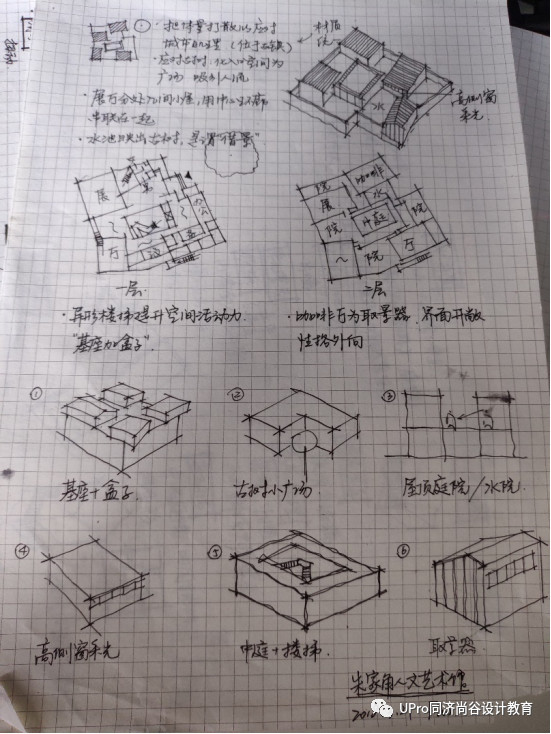 ①
· 把体量打散以应对
城市肌理（位于古镇）
· 应对古树，化入口空间为
广场 吸引人流
· 展厅分处几间小屋，用中心
串联在一起
· 水池映出古树，是谓"借景"
材质
院
水
高侧窗
采光
展
厅
办公
一层
院
咖啡
展
水
院
中庭
院
院
厅
二层
· 异形楼梯提升空间活动力
"基座加盒子"
· 咖啡厅为取景器，界面开敞
性格外向
①
基座+盒子
②
古树小广场
③
屋顶庭院/水院
④
高侧窗采光
⑤
中庭+楼梯
⑥
取景器
朱家角人文艺术馆
UPro同济尚谷设计教育